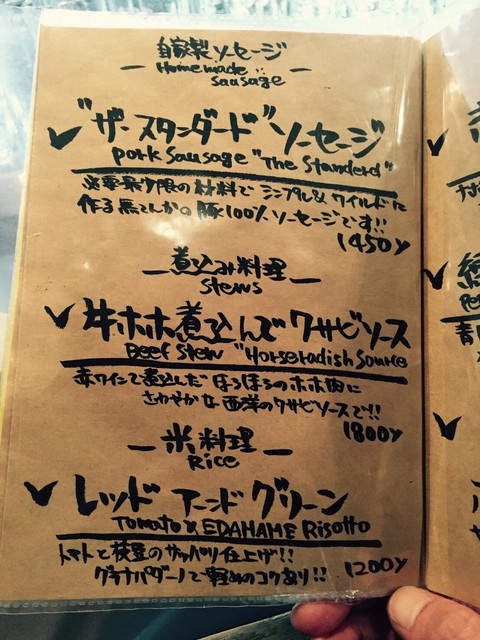 自家製ソーセージ
— Homemade —
sausage
✓"ザ・スタンダード"ソーセージ
Pork Sausage "The Standerd"
必要最少限の材料でシンプル&ワイルドに
作る無てんかの豚100%ソーセージです!!
1450y
— 煮込み料理 —
Stews
✓牛ホホ煮込んでワサビソース
Beef Stew "Horseradish Source
赤ワインで煮込んだほろほろのホホ肉に
さわやかな西洋のワサビソースで!!
1800y
— 米料理 —
Rice
✓レッド アーンド グリーン
Tomato & EDAMAME Risotto
トマトと枝豆のサッパリ仕上げ!!
グラナパダーノで軽めのコクあり!! 1200y